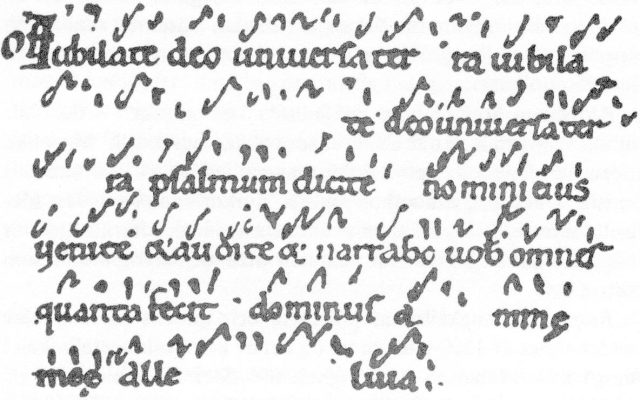 Iubilate deo uniuersa ter ra iubila
te deo uniuersa ter
ra psalmum dicite nomini eius
uenite & audite & narrabo uob omnes
quanta fecit dominus a nimę
męę alle luia :.